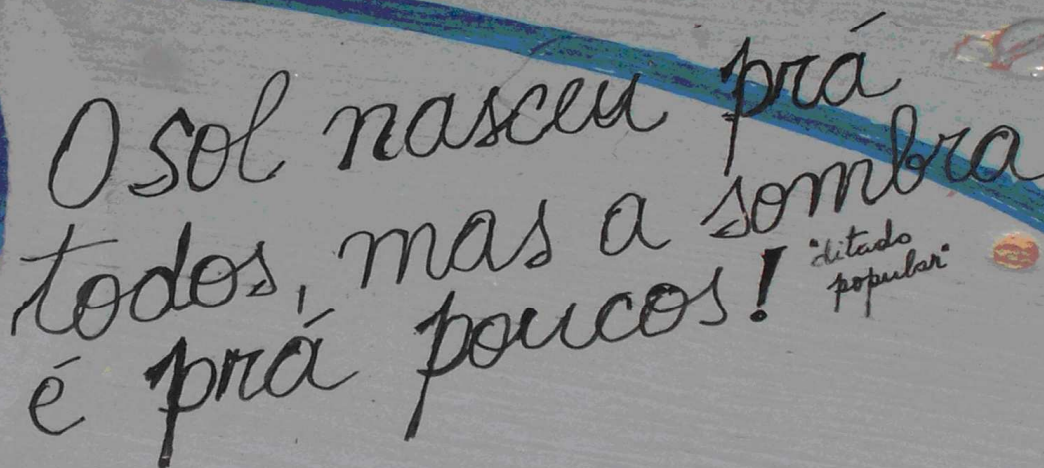 O sol nasceu prá
todos, mas a sombra
é prá poucos!
"ditado
popular"